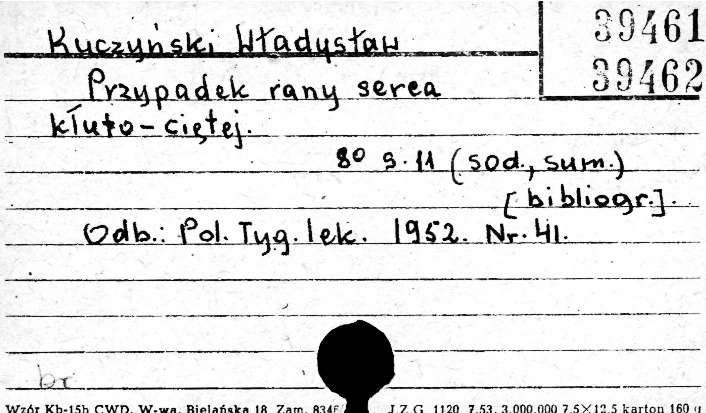 Kuczyński Władysław
39461
39462
Przypadek rany serca
kłuto-ciętej.
8° s. 11 (sod., sum.)
[bibliogr.].
Odb.: Pol. Tyg. lek. 1952. Nr. 41.
br
Wzór Kb-15b CWD, W-wa, Bielańska 18, Zam. J.Z.G. 1120 7.53. 3.000.000 7,5×12,5 karton 160 g